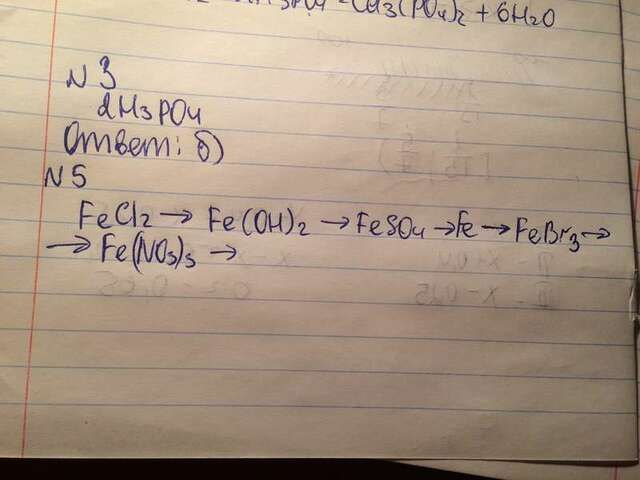 PO4 = Ca3(PO4)2 + 6H2O
N 3
2H3PO4
Ответ: б)
N5
FeCl2 → Fe(OH)2 → FeSO4 → Fe → FeBr3 →
→ Fe(NO3)3 →